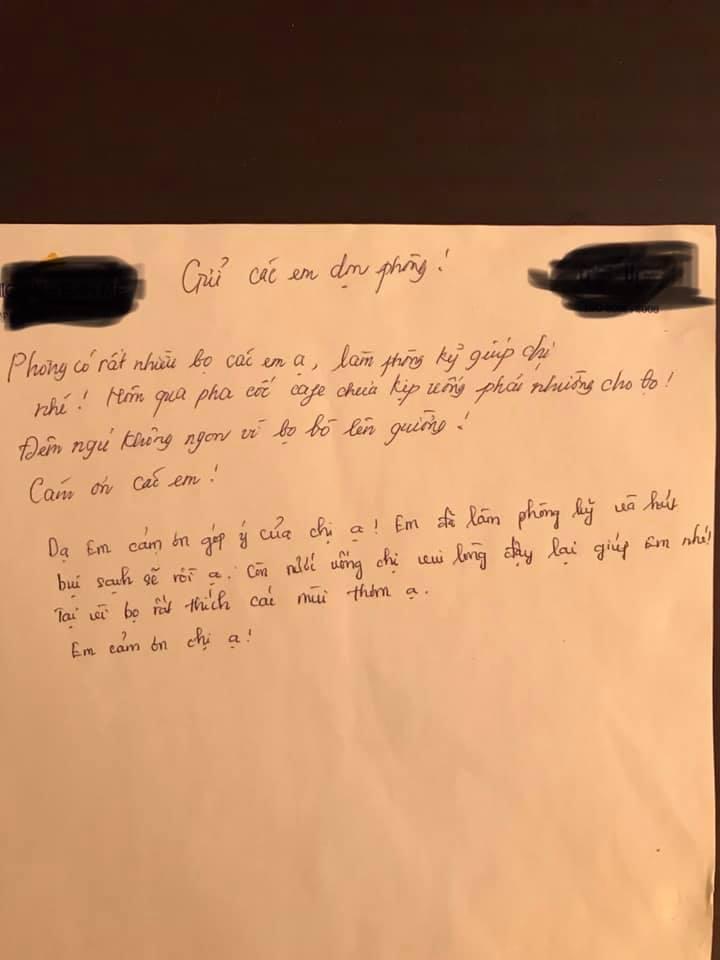 Gửi các em dọn phòng!
Phòng có rất nhiều bọ các em ạ, làm phòng kỹ giúp chị
nhé! Hôm qua pha cốc cafe chưa kịp uống phải nhường cho bọ!
Đêm ngủ không ngon vì bọ bò lên giường!
Cảm ơn các em!
Dạ Em cảm ơn góp ý của chị ạ! Em đã làm phòng kỹ và hút
bụi sạch sẽ rồi ạ. Còn nước uống chị vui lòng đậy lại giúp em nhé!
Tại vì bọ rất thích các mùi thơm ạ.
Em cảm ơn chị ạ!